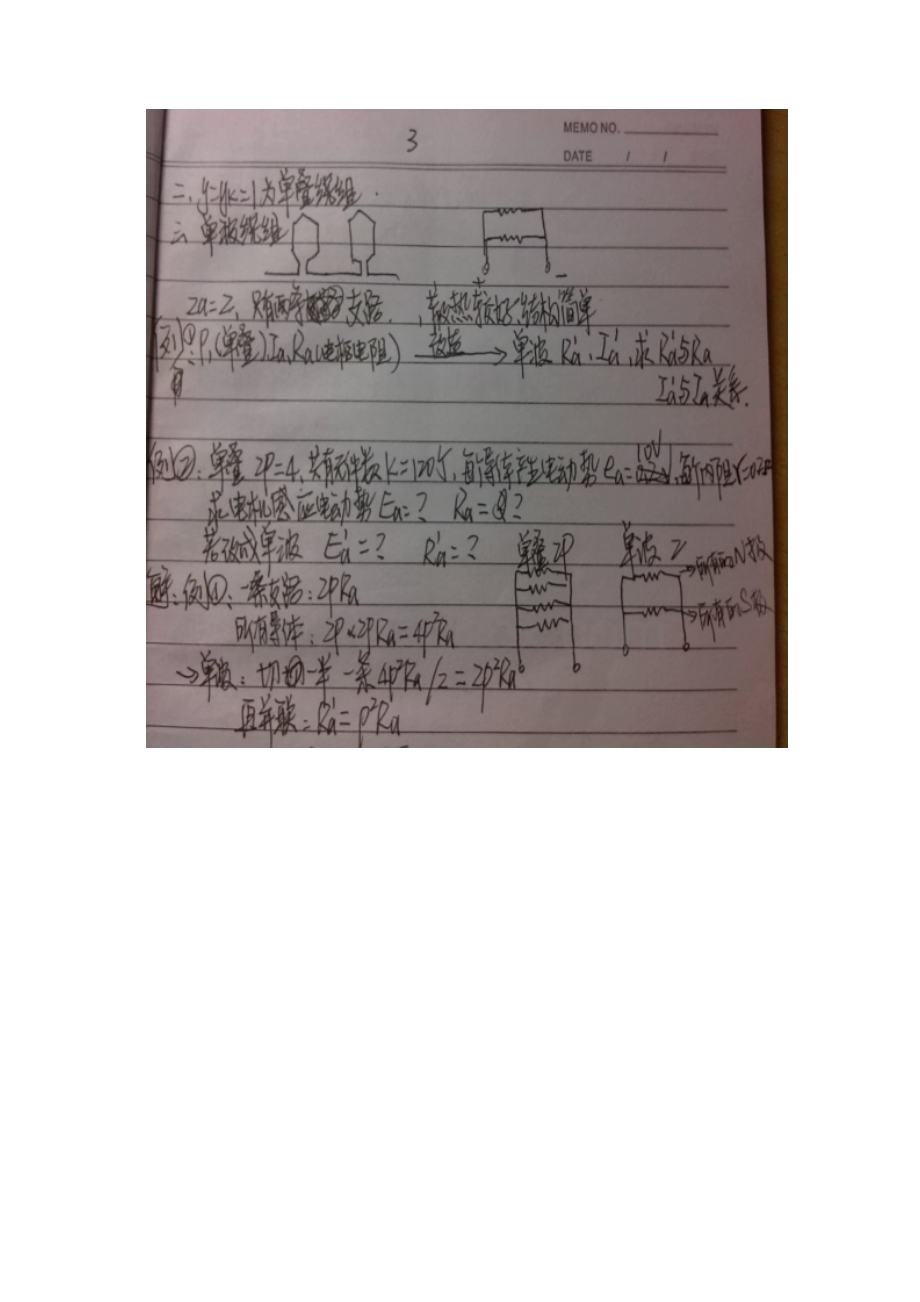 3
MEMO NO.
DATE / /
二、y=yk=1为单叠绕组.
三、单波绕组
+ −
2a=2, 只有两条支路. 散热较好、结构简单
例①: P, (单叠) Ia, Ra(电枢电阻) 改造→ 单波 Ra', Ia', 求Ra'与Ra
Ia'与Ia关系.
例②: 单叠 2P=4, 共有元件数 K=120个, 每导体产生电动势 ea=10V, 每个内阻r=0.2Ω
求电机感应电动势 Ea=? Ra=?
若改成单波 Ea'=? Ra'=? 单叠 2P 单波 2 →所有的N极
解: 例①: 一条支路: 2PRa →所有的S极
所有导体: 2P×2PRa=4P²Ra
→单波: 切一半 一条 4P²Ra/2=2P²Ra
再并联: Ra'=P²Ra